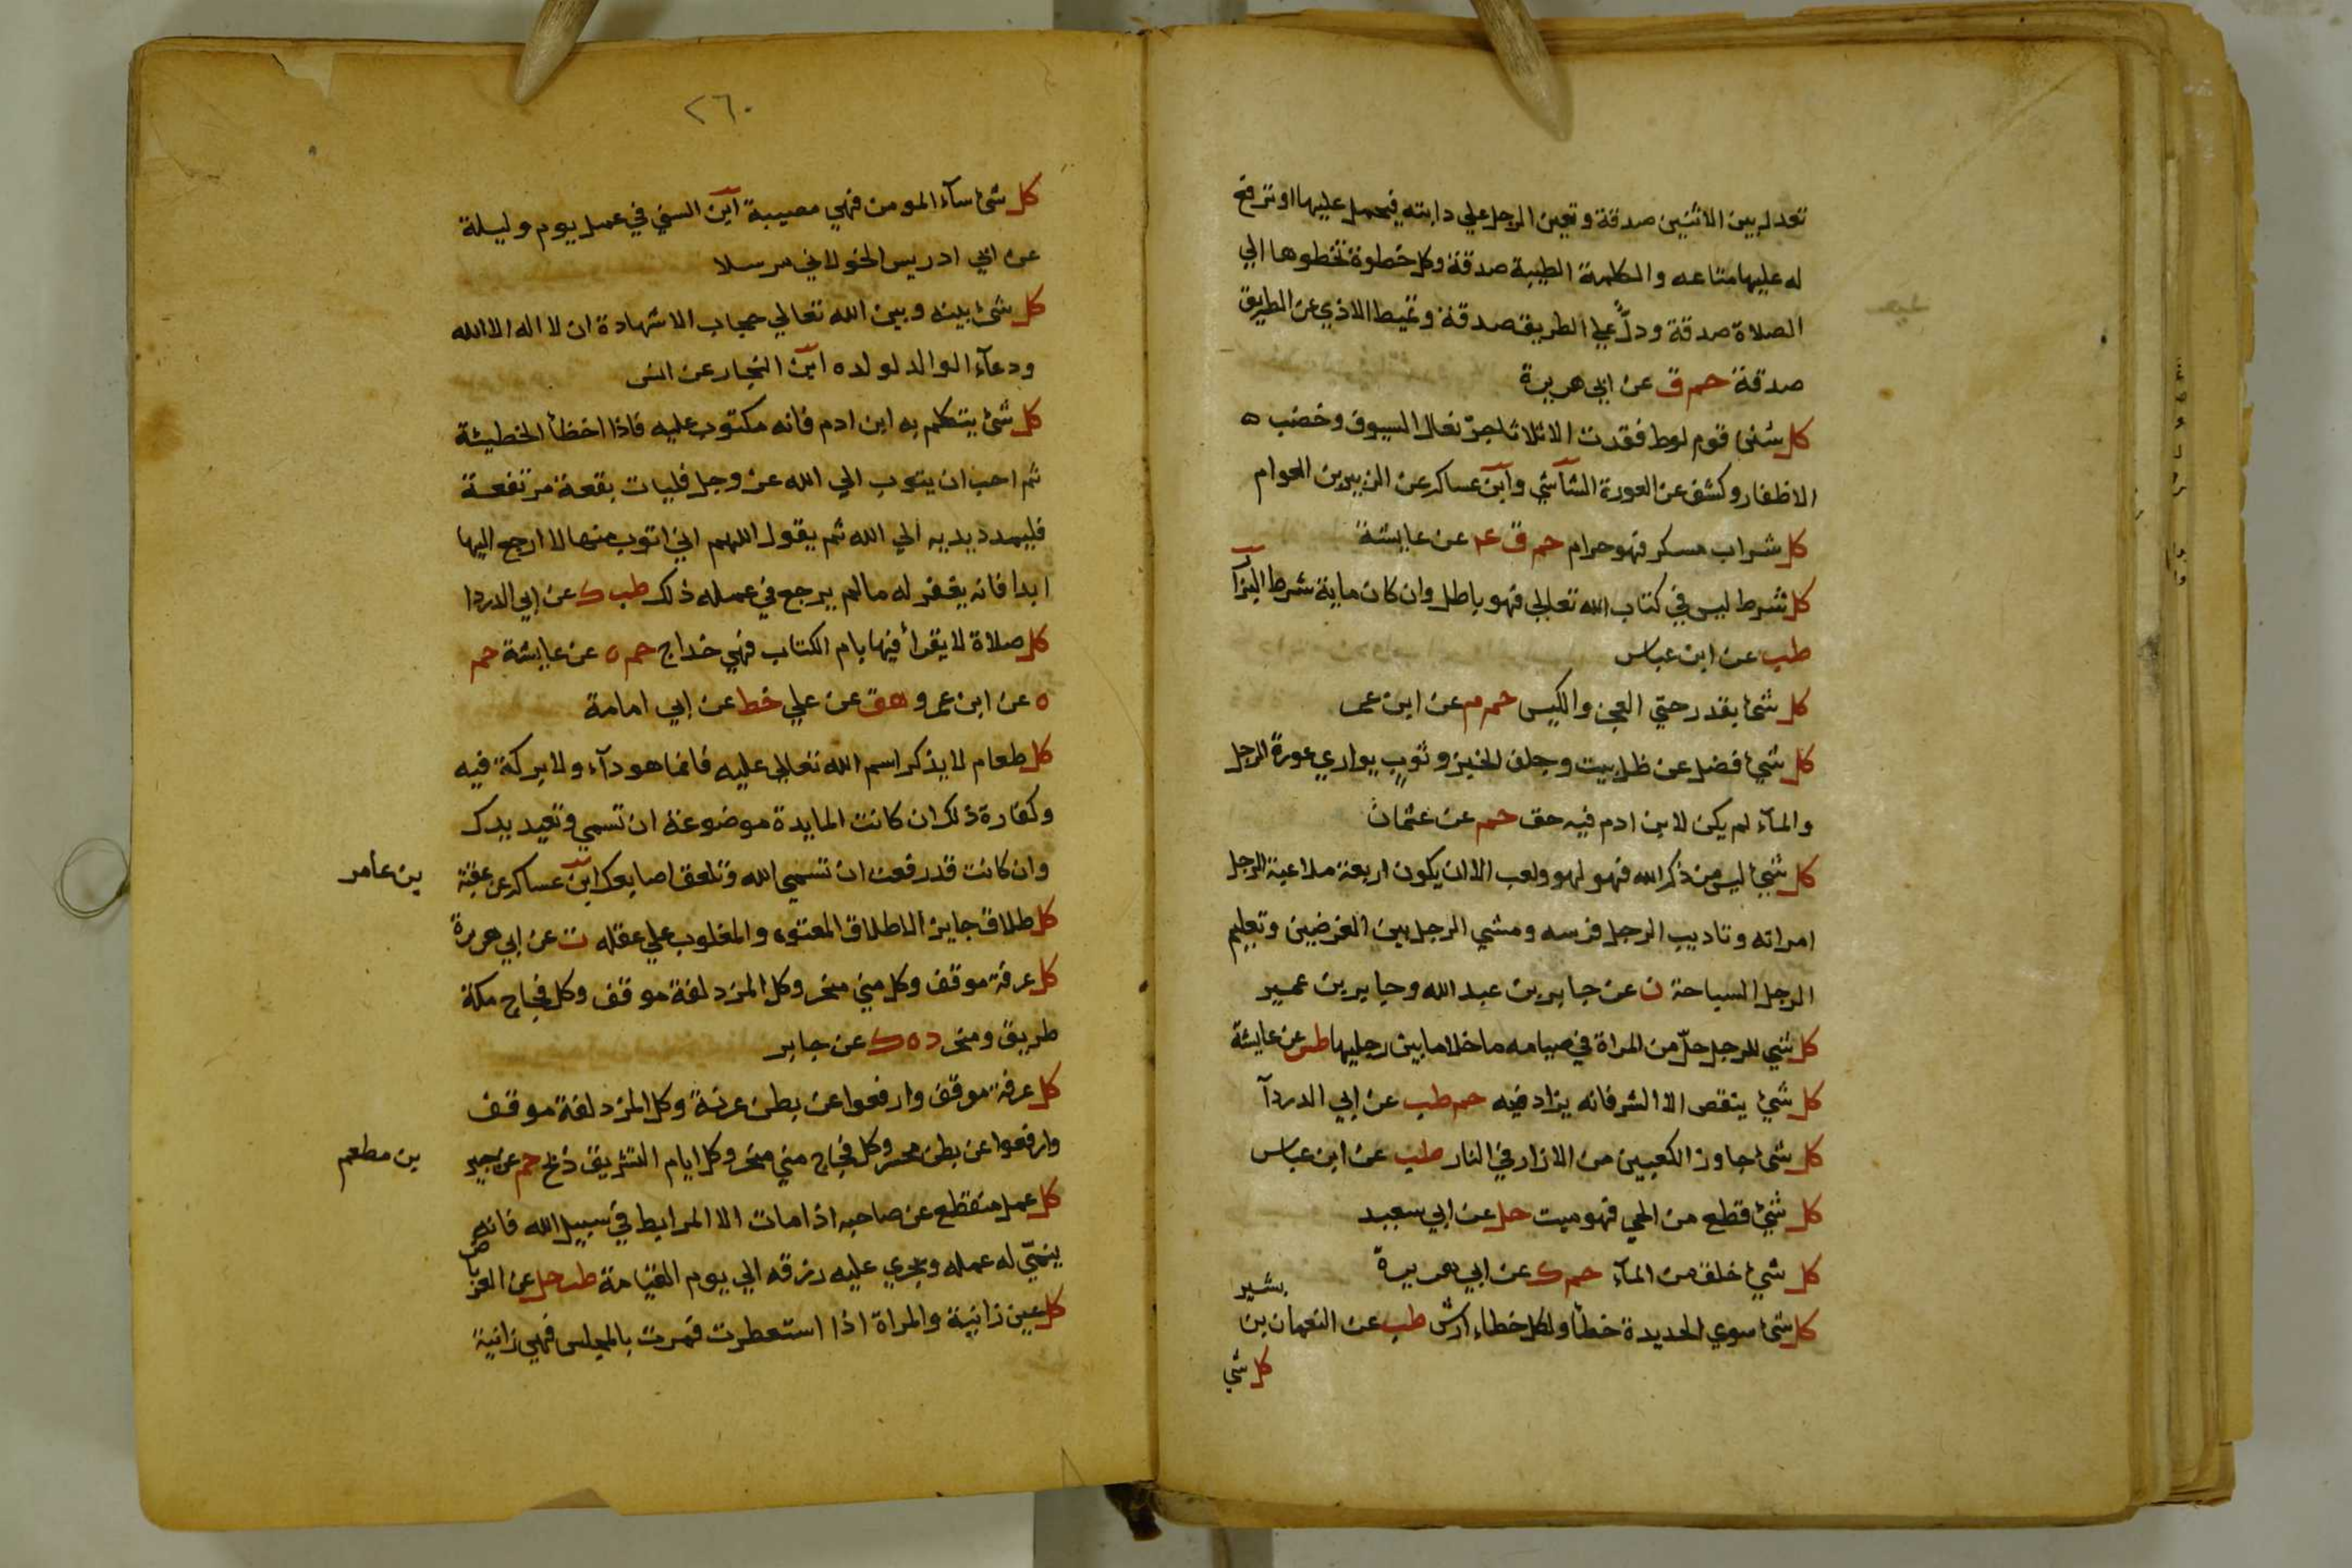 تعدل بين الاثنين صدقة وتعين الرجل علي دابته فيحمل عليها او ترفع
له عليها متاعه والكلمة الطيبة صدقة وكل خطوة تخطوها الي
الصلاة صدقة ودلّ علي الطريق صدقة وتميط الاذي عن الطريق
صدقة حم ق عن ابي هريرة
كل سنن قوم لوط فقدت الا ثلاثا جرّ نعال السيوف وخضب ه
الاظفار وكشف عن العورة الشآشي وابن عساكر عن الزبير بن العوام
كل شراب مسكر فهو حرام حم ق عه عن عايشة
كل شرط ليس في كتاب الله تعالي فهو باطل وان كان ماية شرط البزآ
طب عن ابن عباس
كل شئ بقدر حتي العجز والكيس حم م عن ابن عمر
كل شئ فضل عن ظل بيت وجلف الخبز وثوب يواري عورة الرجل
والمآء لم يكن لابن ادم فيه حق حم عن عثمان
كل شئ ليس من ذكر الله فهو لهو ولعب الا ان يكون اربعة ملاعبة الرجل
امراته وتاديب الرجل فرسه ومشي الرجل بين الغرضين وتعليم
الرجل السباحة ن عن جابر بن عبد الله وجابر بن عمير
كل شي للرجل حلّ من المراة في صيامه ما خلا ما بين رجليها طس عن عايشة
كل شئ ينقص الا الشر فانه يزاد فيه حم طب عن ابي الدردآ
كل شئ جاوز الكعبين من الازار في النار طب عن ابن عباس
كل شئ قطع من الحي فهو ميت حل عن ابي سعيد
كل شئ خلق من المآء حم ك عن ابي هريرة
كل شئ سوي الحديدة خطأ ولكل خطاء ارش طب عن النعمان بن
بشير
كل شي
٢٦٠
كل شئ سآء المومن فهي مصيبة ابن السني في عمل يوم وليلة
عن ابي ادريس الخولاني مرسلا
كل شئ بينه وبين الله تعالي حجاب الا شهادة ان لا اله الا الله
ودعآء الوالد لولده ابن النجار عن انس
كل شئ يتكلم به ابن ادم فانه مكتوب عليه فاذا اخطأ الخطيئة
ثم احب ان يتوب الي الله عز وجل فليات بقعة مرتفعة
فليمدد يديه الي الله ثم يقول اللهم اني اتوب منها لا ارجع اليها
ابدا فانه يغفر له مالم يرجع في عمله ذلك طب ك عن ابي الدردا
كل صلاة لا يقرأ فيها بام الكتاب فهي خداج حم ه عن عايشة حم
ه عن ابن عمرو هق عن علي خط عن ابي امامة
كل طعام لا يذكر اسم الله تعالي عليه فانما هو دآء ولا بركة فيه
وكفارة ذلك ان كانت المايدة موضوعة ان تسمي وتعيد يدك
وان كانت قد رفعت ان تسمي الله وتلعق اصابعك ابن عساكر عن عقبة
بن عامر
كل طلاق جايز الا طلاق المعتوه والمغلوب علي عقله ت عن ابي هريرة
كل عرفة موقف وكل مني منحر وكل المزدلفة موقف وكل فجاج مكة
طريق ومنحر د ه ك عن جابر
كل عرفة موقف وارفعوا عن بطن عرنة وكل المزدلفة موقف
وارفعوا عن بطن محسر وكل فجاج مني منحر وكل ايام التشريق ذبح حم عن جبير
بن مطعم
كل عمل منقطع عن صاحبه اذا مات الا المرابط في سبيل الله فانه
ينمّي له عمله ويجري عليه رزقه الي يوم القيامة طب حل عن العرباض
كل عين زانية والمراة اذا استعطرت فمرت بالمجلس فهي زانية